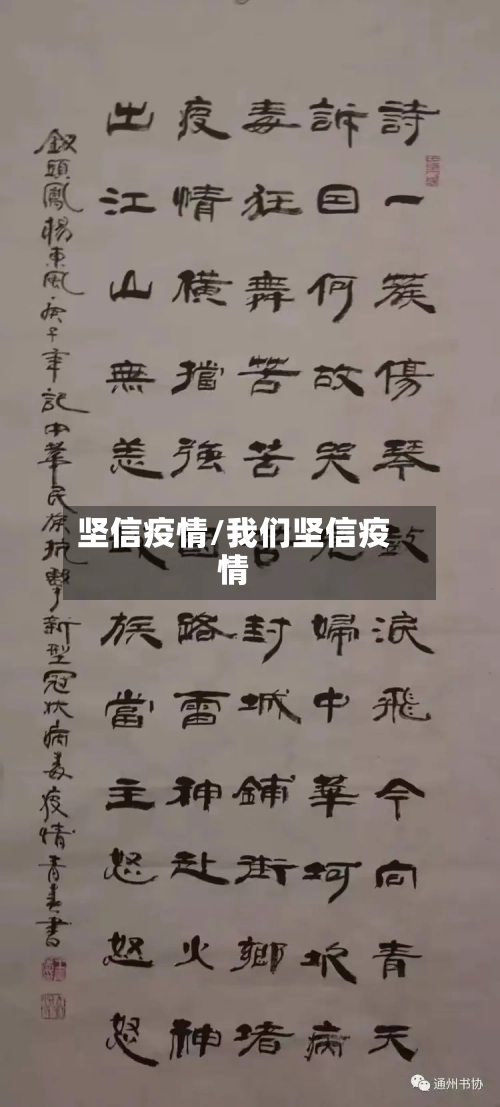 詩一簇傷琴淚飛今向青天
訴国何故哭婦中華坷坎病
毒狂舞苦苦苦封城鋪街鄉堵
疫情橫擋強路雷神赴火神
出江山無恙族當主怒怒怒
釵頭鳳楊東風庚子年記中華民族抗擊新型冠狀病毒疫情青書
坚信疫情/我们坚信疫
情
通州书协